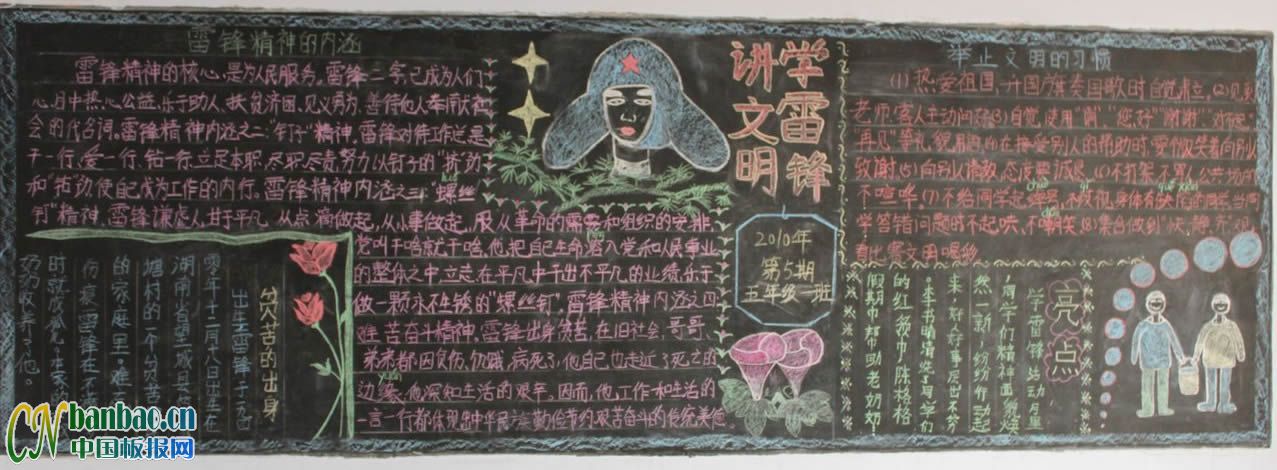 雷锋精神的内涵
雷锋精神的核心，是为人民服务。雷锋二字已成为人们
心目中热心公益、乐于助人、扶贫济困、见义勇为、善待他人、奉献社
会的代名词。雷锋精神内涵之二"钉子"精神，雷锋对待工作总是
干一行、爱一行、钻一行、立足本职、尽职尽责努力以钉子的"挤"劲
和"钻"劲使自己成为工作的内行。雷锋精神内涵之三"螺丝
钉"精神，雷锋谦虚人甘于平凡，从点滴做起，从小事做起，服从革命的需要和组织的安排，
党叫干啥就干啥，他把自己生命融入党和人民事业
的整体之中立志在平凡中干出不平凡的业绩，乐于
做一颗永不生锈的"螺丝钉"，雷锋精神内涵之四
艰苦奋斗精神，雷锋出身贫苦，在旧社会，哥哥、
弟弟都因负伤、饥饿、病死了，他自己也走近了死亡的
边缘，他深知生活的艰辛。因而，他工作和生活的
一言一行都体现出中华民族勤俭节约、艰苦奋斗的传统美德
贫苦的出身
出生雷锋于一九四
零年十二月八日出生在
湖南省望城县
塘村的一个贫苦
的家庭里，难
伤痕，雷锋在不
时就成孤儿，
奶收养了他。
学雷锋
讲文明
2010年
第5期
五年级一班
举止文明的习惯
(1)热爱祖国，升国旗奏国歌时自觉肃立。(2)见到
老师、客人主动问好(3)自觉使用"请""您好""谢谢""对不起"
"再见"等礼貌用语在接受别人的帮助时，要微笑着向别人
致谢。(5)向别人请教，态度要诚恳。(6)不打架不骂人，公共场所
不喧哗。(7)不给同学起绰号，不歧视身体有缺陷的同学，当同
chuò qí quē xiàn
学答错问题时不起哄，不嘲笑。(8)集合做到快、静、齐，观
看比赛文明喝彩
亮点
学雷锋活动月里
同学们精神面貌焕
然一新，纷纷行动起
来，好人好事层出不穷
李书明清洗了同学们
的红领巾，陈格格
假期中帮助老奶奶
CN banbao.cn
中国板报网